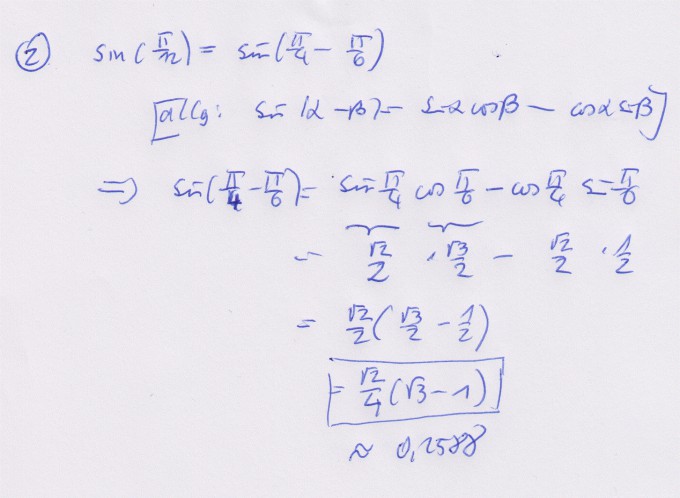 ② sin(π/12) = sin(π/4 − π/6)
[allg: sin(α − β) = sin α cos β − cos α sin β]
=> sin(π/4 − π/6) = sin π/4 cos π/6 − cos π/4 sin π/6
= √2/2 · √3/2 − √2/2 · 1/2
= √2/2 (√3/2 − 1/2)
= √2/4 (√3 − 1)
≈ 0,2588